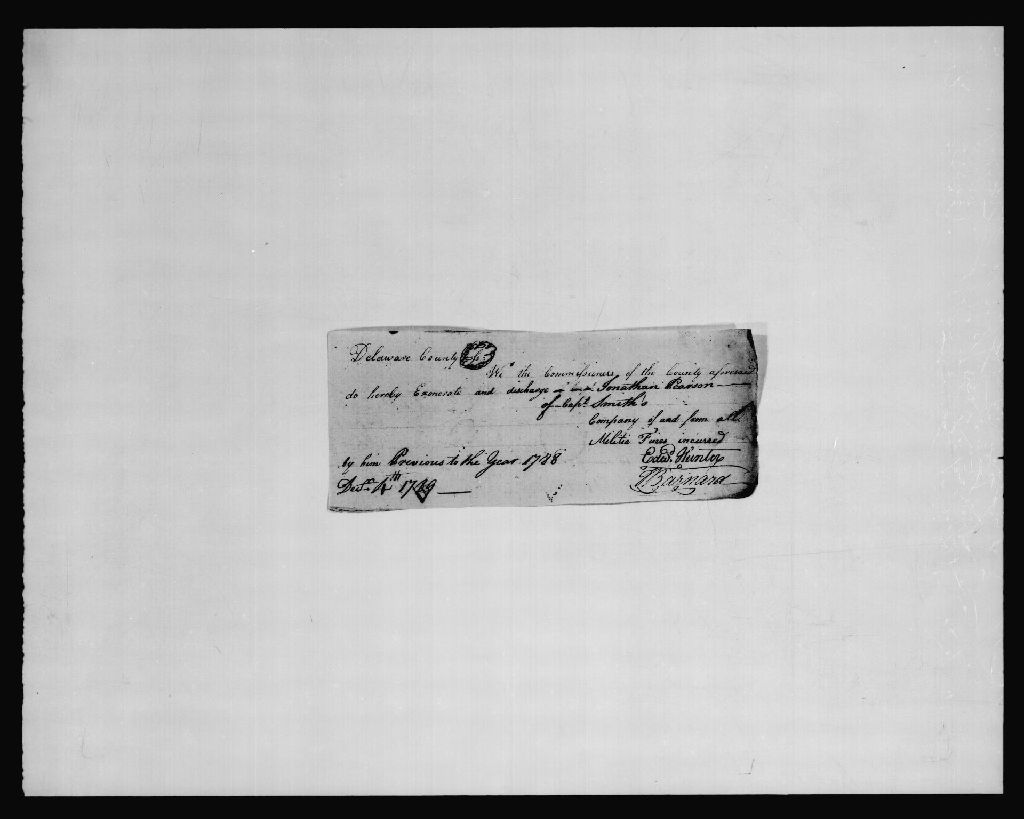 Delaware County ss:
We the Commissioners of the County aforesaid
do hereby Exonerate and discharge Jonathan Pearson
of Capt. Smith's
Company of and from all
Militia Fines incurred
by him Previous to the Year 1788
Edwd. Hunter
Decr. 4th 1789
Barnard